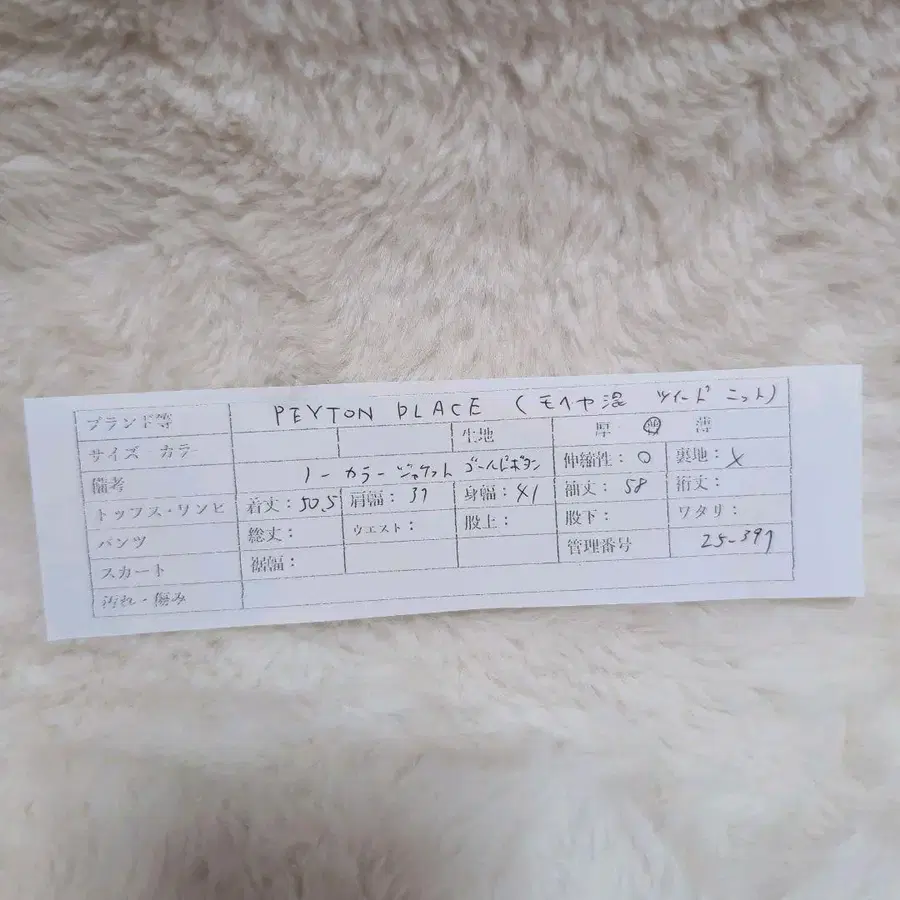 ブランド等 PEYTON PLACE (モヘヤ混 ツイード ニット)
サイズ カラー 生地 厚 普 薄
備考 ノーカラージャケット ゴールドボタン 伸縮性: ○ 裏地: ×
トップス・ワンピ 着丈: 50.5 肩幅: 37 身幅: 41 袖丈: 58 裄丈:
パンツ 総丈: ウエスト: 股上: 股下: ワタリ:
スカート 裾幅: 管理番号 25-397
汚れ・傷み